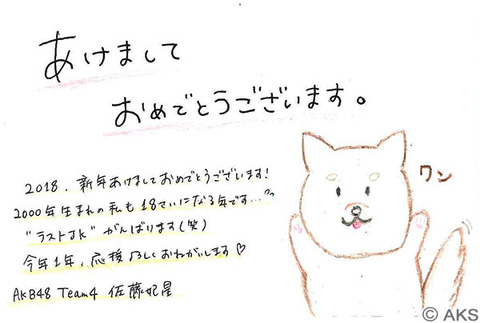 あけまして
おめでとうございます。
ワン
2018、新年あけましておめでとうございます!
2000年生まれの私も18さいになる年です...
"ラストJK"がんばります(笑)
今年1年、応援よろしくおねがいします♡
AKB48 Team4 佐藤妃星
© AKS